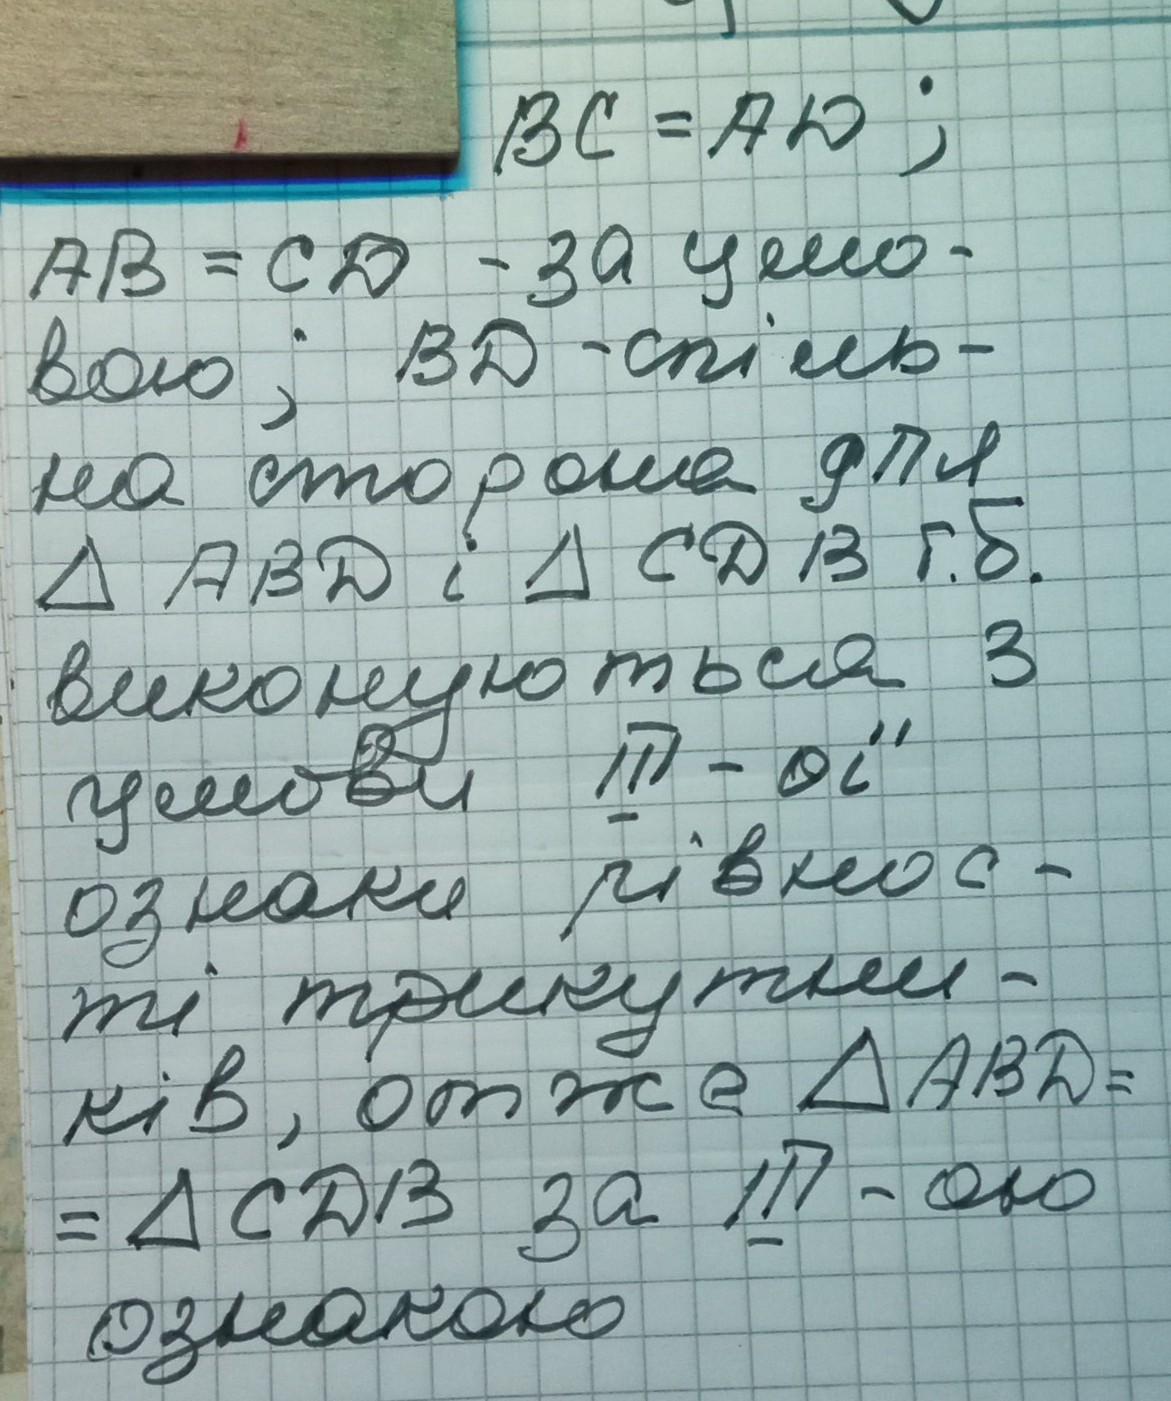 BC = AD ;
AB = CD - за умо-
вою ; BD - спіль-
на сторона для
Δ ABD і Δ CDB т.б.
виконуються 3
умови III - ої
ознаки рівнос-
ті трикутни-
ків, отже Δ ABD =
= Δ CDB за III - ою
ознакою